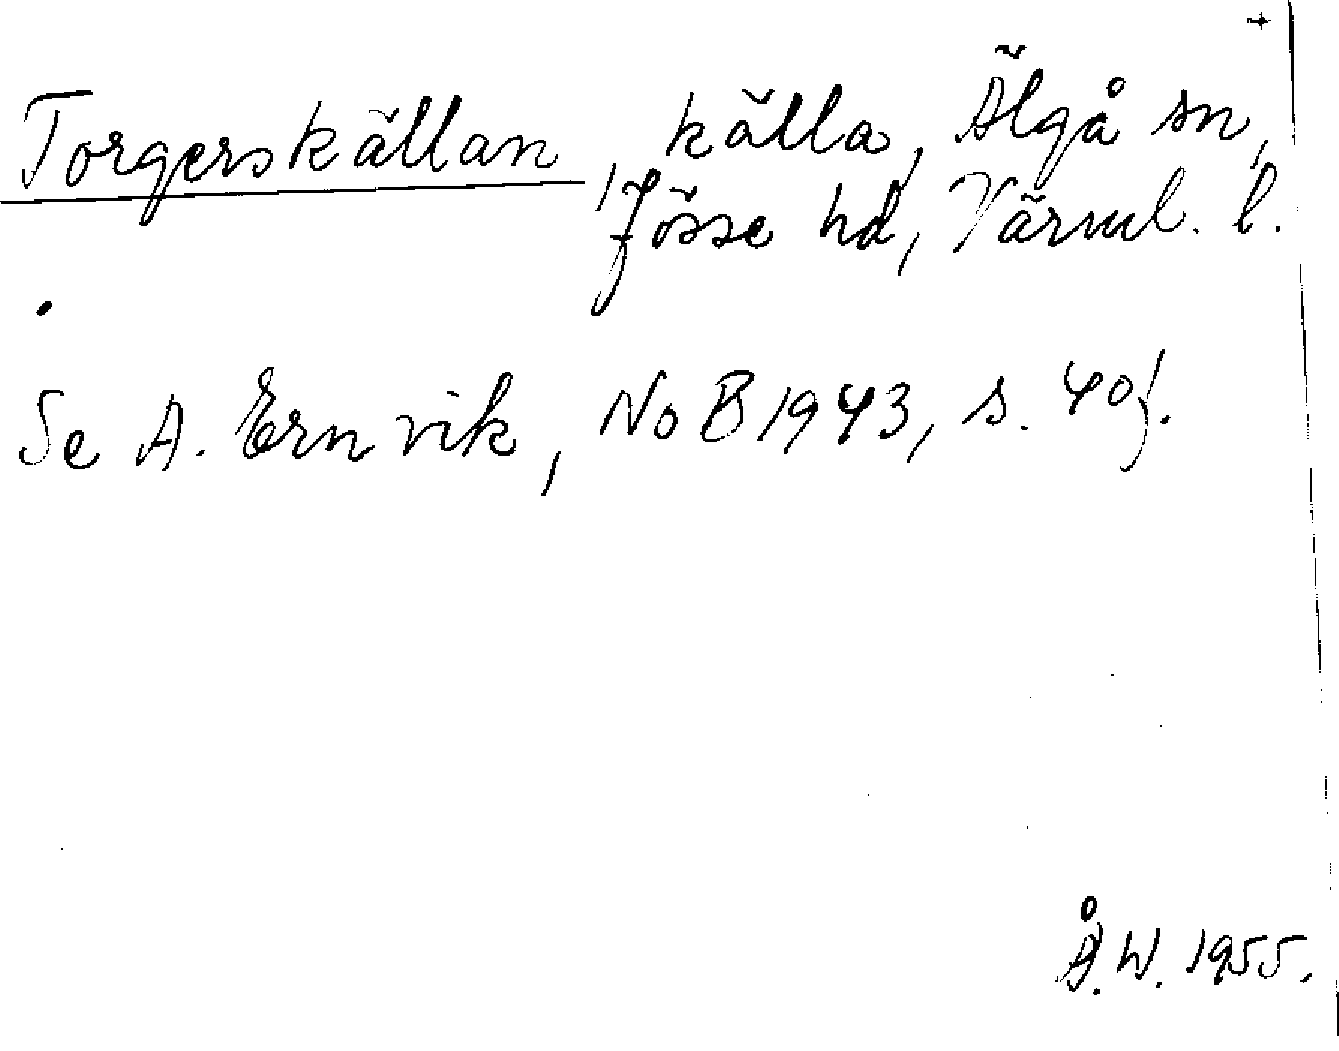 Torgerskällan, källa, Älgå sn,
Jösse hd, Värml. l.
Se A. Ernvik, NoB 1943, s. 40f.
Å.W. 1955.